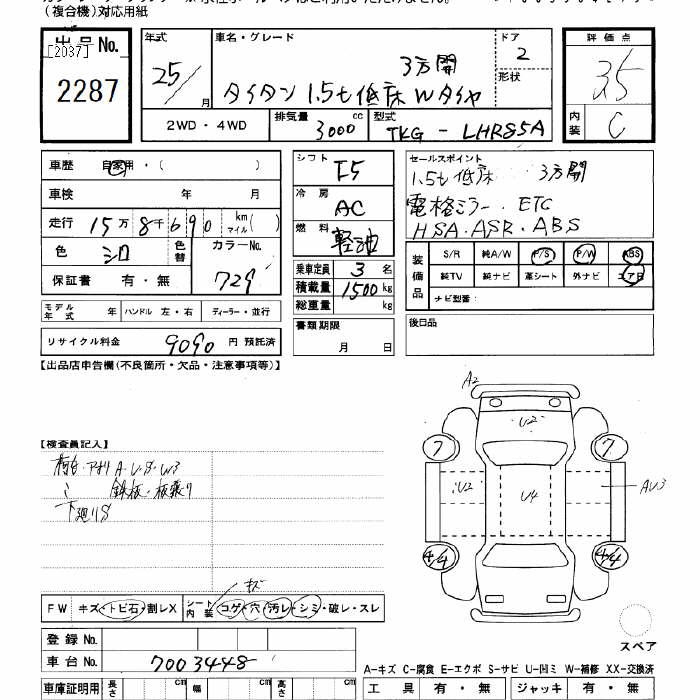 (複合機)対応用紙
出品No.
[2037]
2287
年式
25/
月
車名・グレード
3方開
タイタン 1.5t 低床 Wタイヤ
ドア
2
形状
評価点
3.5
内装
C
2WD・4WD
排気量
3000
cc
型式
TKG - LHR85A
車歴
自家用・( )
車検 年 月
走行 15万 8千 690 km マイル( )
色 シロ
色替
カラーNo.
729
保証書 有・無
モデル年式 年
ハンドル 左・右
ディーラー・並行
リサイクル料金 9090 円 預託済
シフト
F5
冷房
AC
燃料
軽油
乗車定員 3 名
積載量 1500 kg
総重量 kg
書類期限
月 日
セールスポイント
1.5t 低床 3方開
電格ミラー. ETC
HSA. ASR. ABS
装備品
S/R 純A/W F/S P/W ABS
純TV 純ナビ 革シート 外ナビ エアB
ナビ型番:
後日品
【出品店申告欄(不良箇所・欠品・注意事項等)】
【検査員記入】
荷台・アオリ A・U・S・W3
鉄板・板張り
下廻りS
A2
U2
7
7
U2
U4
AU3
4/4
4/4
スペア
FW
キズ・トビ石・割レX
シート内装
キズ
コゲ・穴・汚レ・シミ・破レ・スレ
登録No.
車台No. 7003448
車庫証明用
長さ
cm
幅
cm
高さ
cm
A-キズ C-腐食 E-エクボ S-サビ U-凹ミ W-補修 XX-交換済
工具 有・無
ジャッキ 有・無